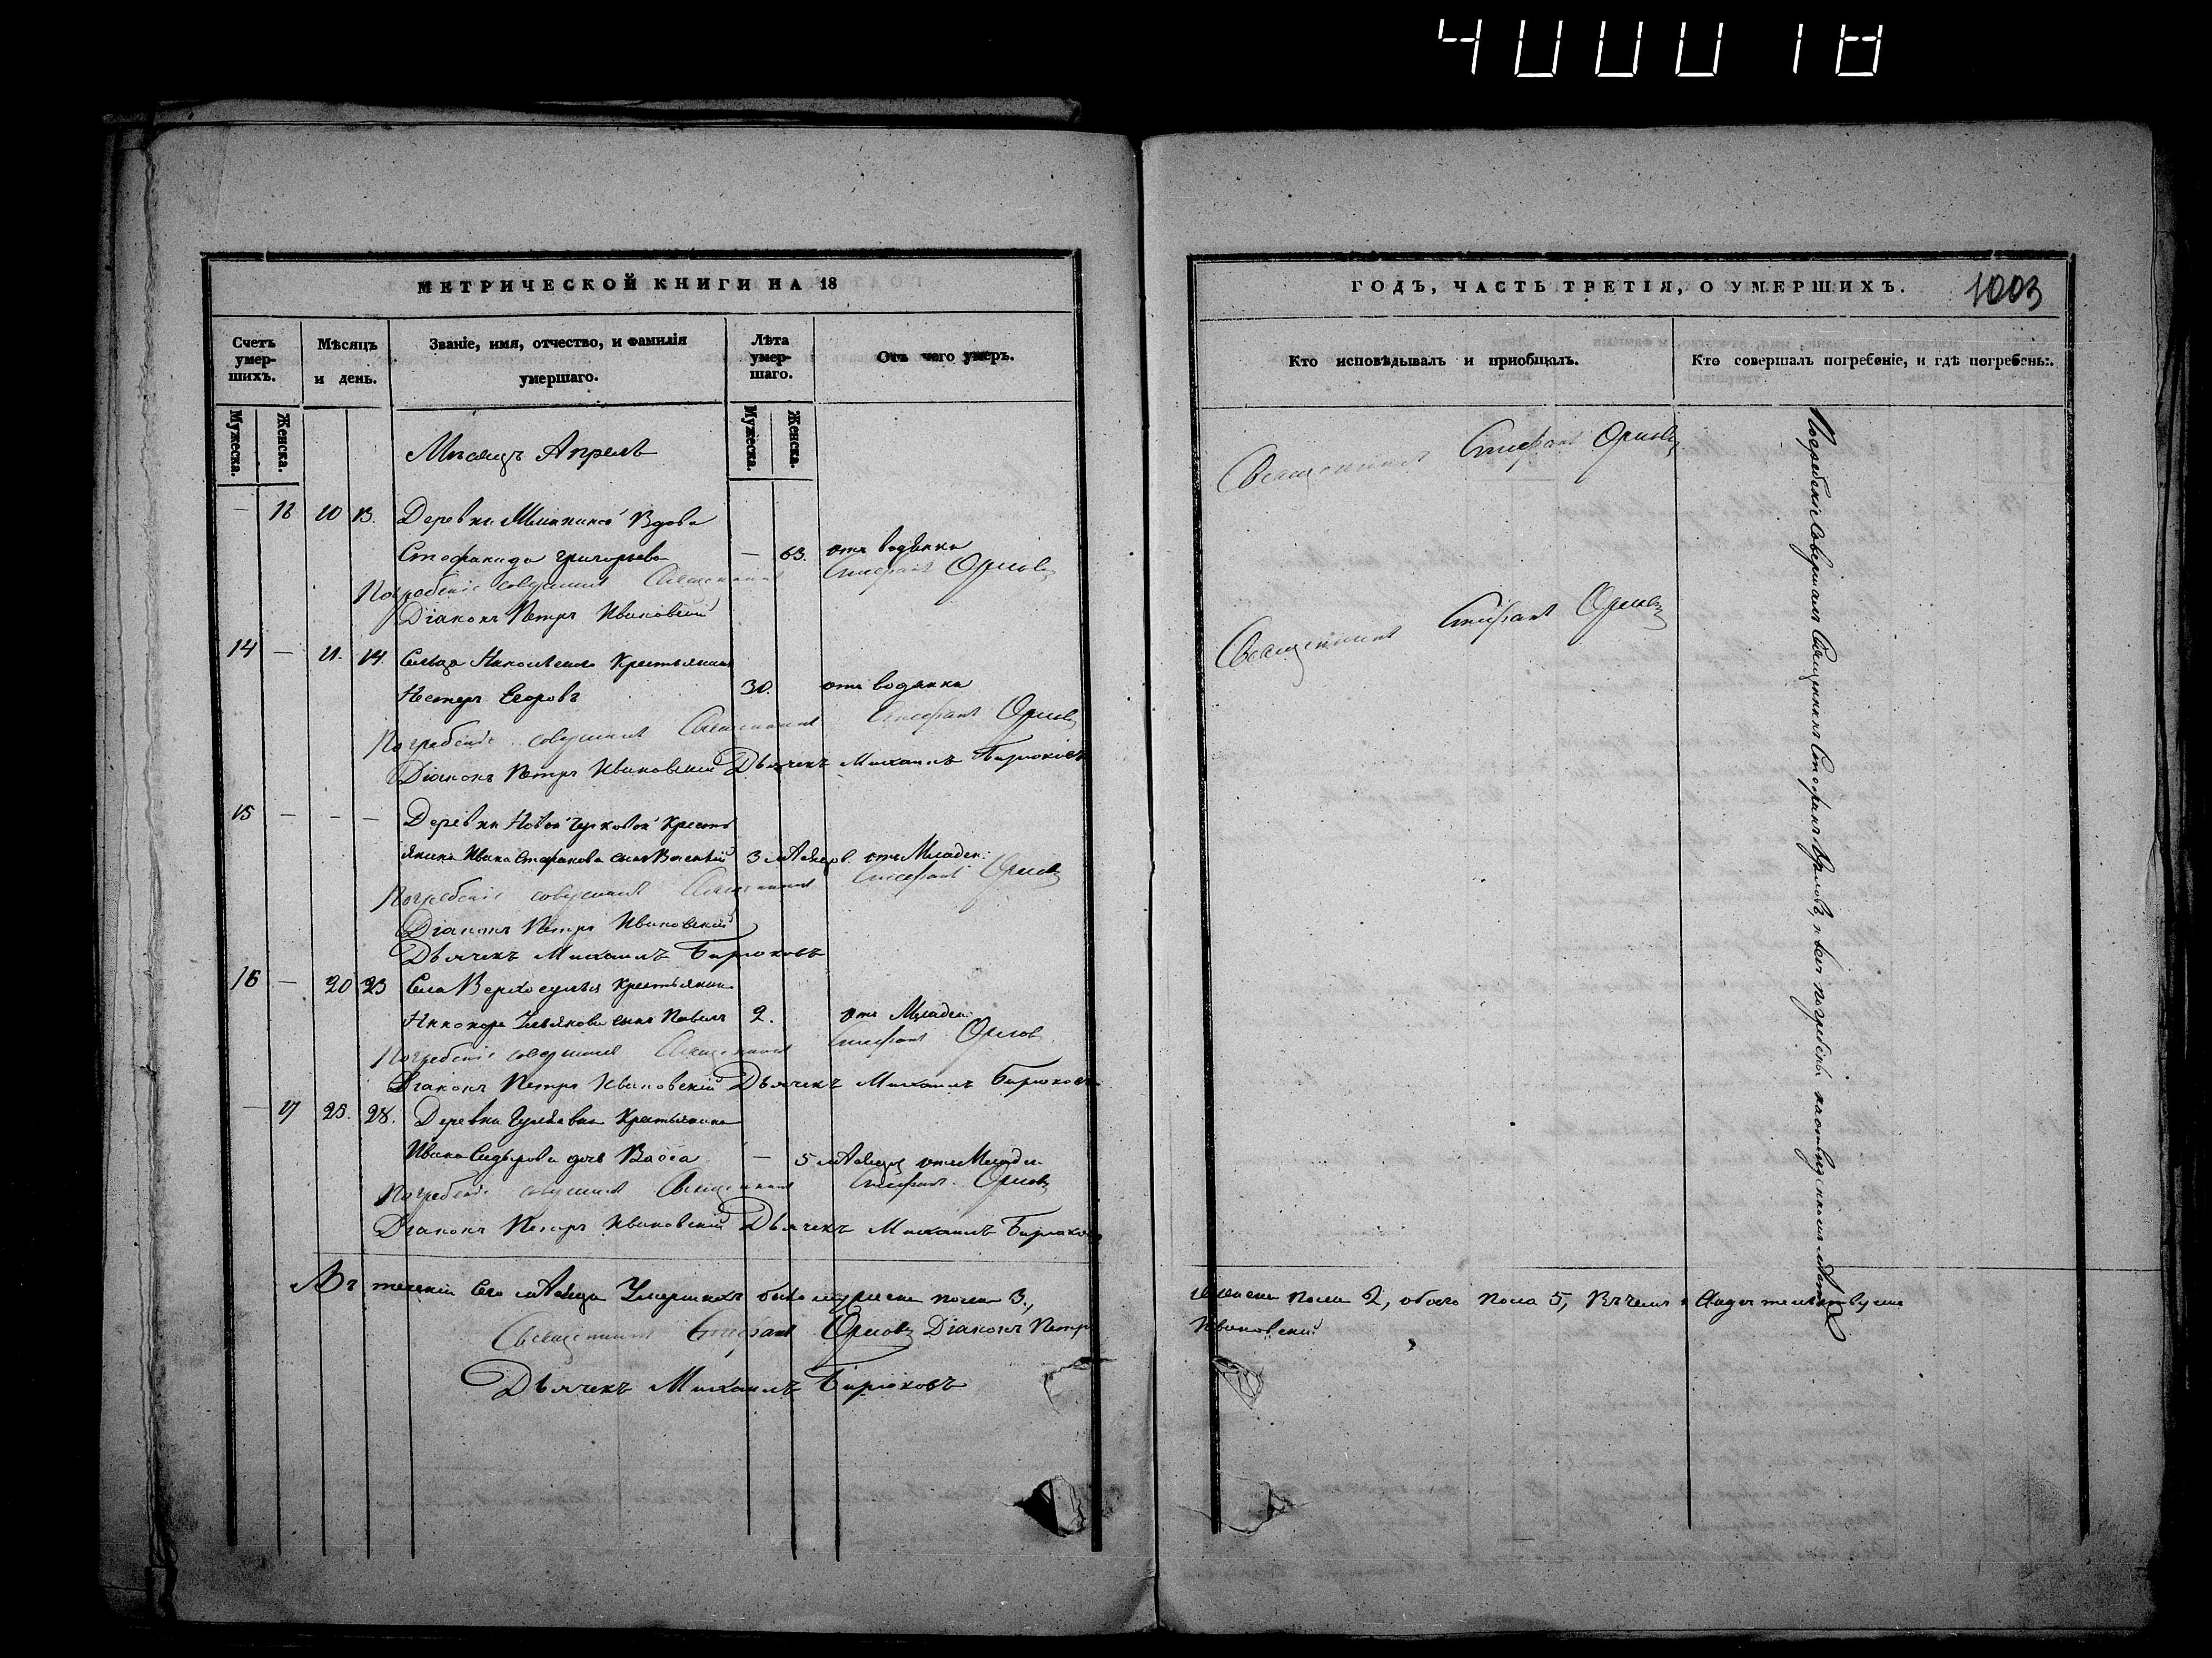 400018
МЕТРИЧЕСКОЙ КНИГИ НА 18
Счетъ умер-шихъ.
Мѣсяцъ и день.
Званіе, имя, отчество, и фамилія умершаго.
Лѣта умер-шаго.
Отъ чего умеръ.
Мужеска. Женска.
Мужеска. Женска.
Мѣсяцъ Апрель
— 10 13. Деревни Вдова
Стефанида Григорьева — 63. отъ водянки
Погребеніе совершалъ Священникъ Стефанъ Орловъ
Діаконъ Петръ Ивановскій
14 — 11. 14. Сельца Николаевскаго Крестьянинъ
Нестеръ Егоровъ 30. отъ водянки
Погребеніе совершалъ Священникъ Стефанъ Орловъ
Діаконъ Петръ Ивановскій Дьячекъ Михаилъ Бирюковъ
15 — — — Деревни Новой Крестья
янина Ивана Стефанова сынъ 3 мѣсяцов. отъ Младен:
Погребеніе совершалъ Священникъ Стефанъ Орловъ
Діаконъ Петръ Ивановскій
Дьячекъ Михаилъ Бирюковъ
16 — 20 23 Села Верхосунья Крестьянина
Никонора сынъ Павелъ 2. отъ Младен:
Погребеніе совершалъ Священникъ Стефанъ Орловъ
Діаконъ Петръ Ивановскій Дьячекъ Михаилъ Бирюковъ
— 17 25. 28. Деревни Крестьянина
Ивана Сидорова дочь Васса — 5 мѣсяцъ отъ Младен.
Погребеніе совершалъ Священникъ Стефанъ Орловъ
Діаконъ Петръ Ивановскій Дьячекъ Михаилъ Бирюковъ
Въ теченіи сего мѣсяца Умершихъ было мужеска пола 3.,
Священникъ Стефанъ Орловъ Діаконъ Петръ
Дьячекъ Михаилъ Бирюковъ
ГОДЪ, ЧАСТЬ ТРЕТІЯ, О УМЕРШИХЪ.
1003
Кто исповѣдывалъ и приобщалъ.
Кто совершалъ погребеніе, и гдѣ погребены.
Священникъ Стефанъ Орловъ
Священникъ Стефанъ Орловъ
Погребеніе совершалъ Священникъ Стефанъ Орловъ, и всѣ погребены на отведенномъ мѣстѣ
женска пола 2, обоего пола 5, Въ чемъ и свидетельствуемъ
Ивановскій